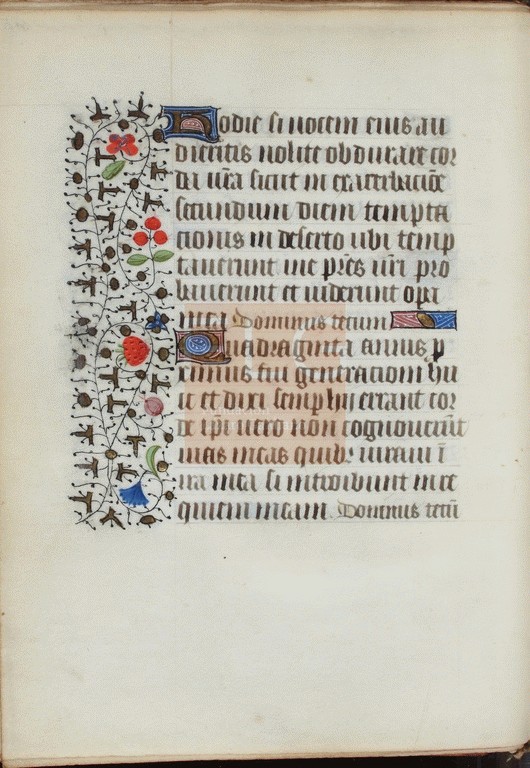 Hodie si vocem eius au
dieritis nolite obdurare cor
da v̄ra sicut in exacerbaciōe
secundum diem tempta
cionis in deserto ubi temp
taverunt me pr̄es v̄ri pro
baverunt et viderunt opa
mea Dominus tecum
Quadraginta annis p
ximus fui generationi hu
ic et dixi semp hij errant cor
de ipi vero non cognoverūt
vias meas quibꝫ iuravi ī
ira mea si introibunt in re
quiem meam. Dominus tecū